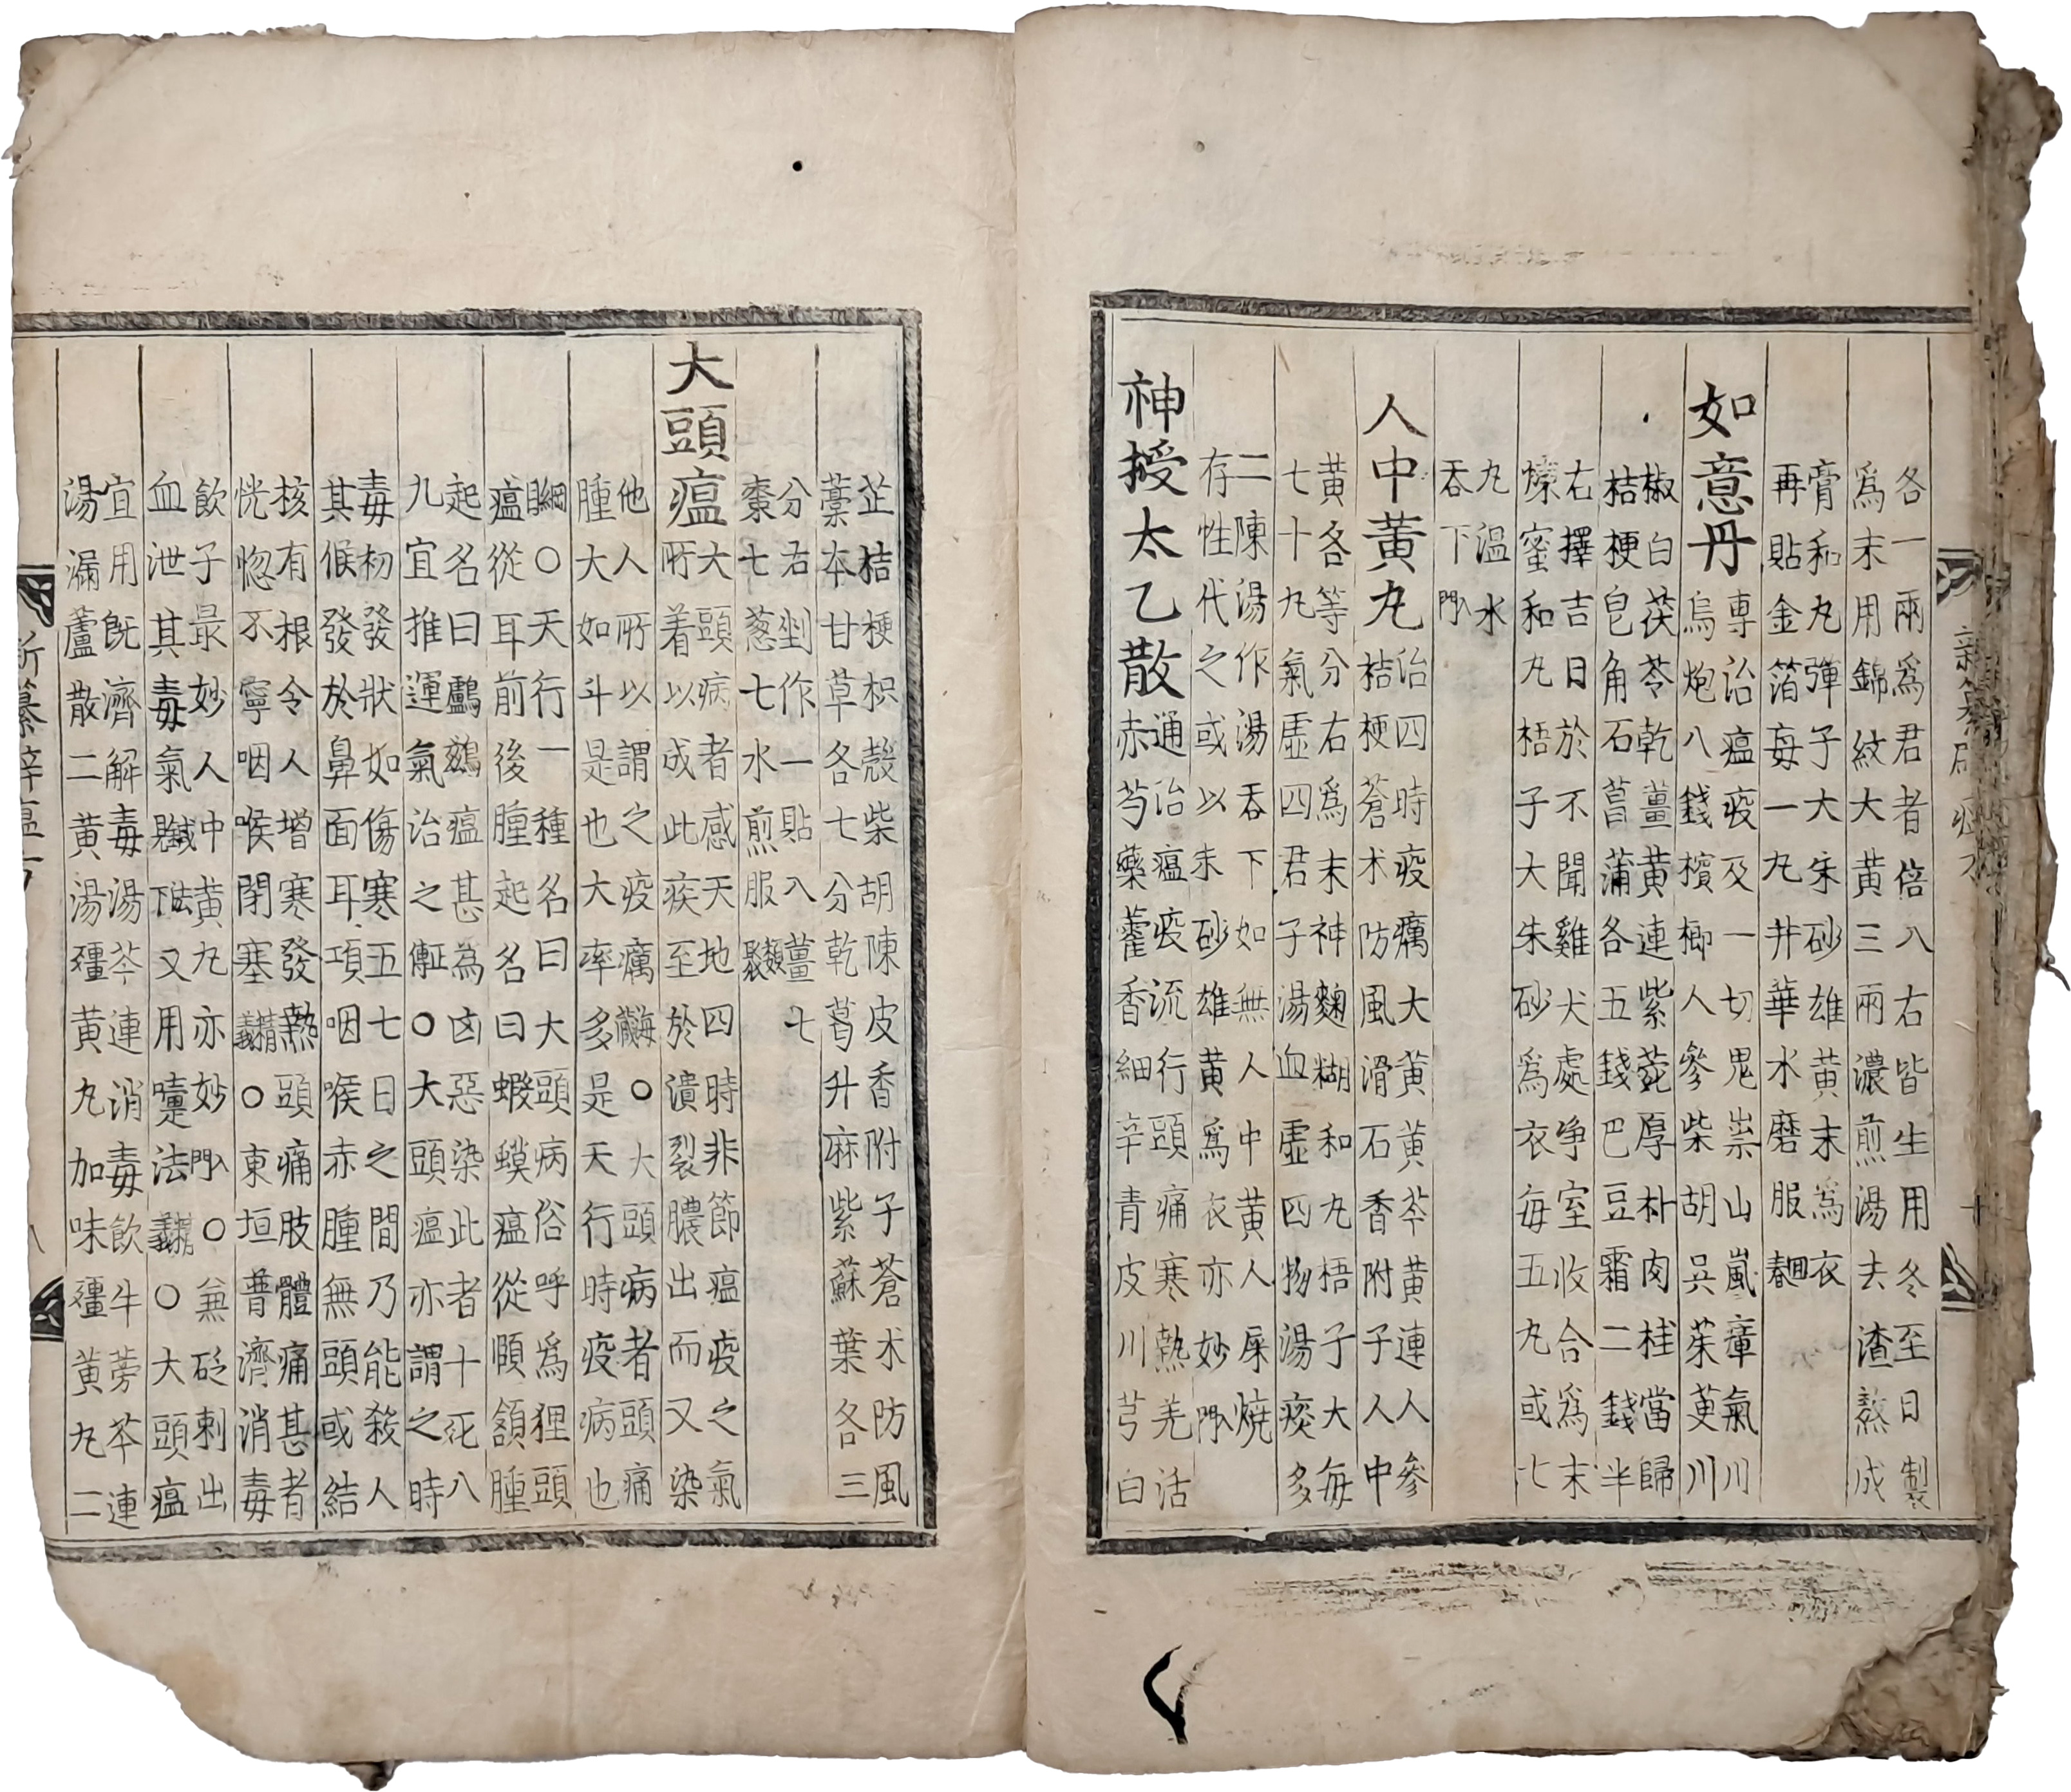 各一兩爲君者倍入右皆生用冬至日製
爲末用錦紋大黃三兩濃煎湯去渣熬成
膏和丸彈子大朱砂雄黃末爲衣
再貼金箔每一丸井華水磨服回春
如意丹
專治瘟疫及一切鬼祟山嵐瘴氣川
烏炮八錢檳榔人參柴胡吳茱萸川
椒白茯苓乾薑黃連紫菀厚朴肉桂當歸
桔梗皂角石菖蒲各五錢巴豆霜二錢半
右擇吉日於不聞雞犬處爭室收合爲末
煉蜜和丸梧子大朱砂爲衣每五丸或七
丸溫水
吞下入門
人中黃丸
治四時疫癘大黃黃芩黃連人參
桔梗蒼朮防風滑石香附子人中
黃各等分右爲末神麴糊和丸梧子大每
七十九氣虛四君子湯血虛四物湯痰多
二陳湯作湯吞下如無人中黃人屎燒
存性代之或以朱砂雄黃爲衣亦妙入門
神授太乙散
通治瘟疫流行頭痛寒熱羌活
赤芍藥藿香細辛青皮川芎白
芷桔梗枳殼柴胡陳皮香附子蒼朮防風
藁本甘草各七分乾葛升麻紫蘇葉各三
分右剉作一貼入薑七
棗七葱七水煎服類聚
大頭瘟
大頭病者感天地四時非節瘟疫之氣
所着以成此疾至於潰裂膿出而又染
他人所以謂之疫癘海藏○大頭病者頭痛
腫大如斗是也大率多是天行時疫病也
綱目○天行一種名曰大頭病俗呼爲狸頭
瘟從耳前後腫起名曰蝦蟆瘟從頤頷腫
起名曰鸕鷀瘟甚為凶惡染此者十死八
九宜推運氣治之正傳○大頭瘟亦謂之時
毒初發狀如傷寒五七日之間乃能殺人
其候發於鼻面耳項咽喉赤腫無頭或結
核有根令人增寒發熱頭痛肢體痛甚者
恍惚不寧咽喉閉塞精義○東垣普濟消毒
飲子最妙人中黃丸亦妙入門○兼砭刺出
血泄其毒氣又用嚏法精義○大頭瘟
宜用旣濟解毒湯芩連消毒飲牛蒡芩連
湯漏蘆散二黃湯殭黃丸加味殭黃丸二
新纂辟瘟